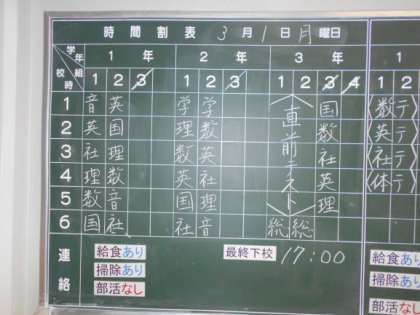 時間割表 3月1日月曜日
学年 1年 2年 3年 1
校時 組 1 2 3 1 2 3 1 2 3 4 1
1 音 英 学 学 国 〈数テ〉
2 英 国 理 数 数 〈英テ〉
3 社 理 数 英 社 〈社テ〉
4 理 数 英 社 英 〈体テ〉
5 数 音 国 理 理
6 国 社 社 音 総 総
〈直前テスト〉
連絡
給食あり 最終下校 17:00 給食あり
掃除あり 掃除あり
部活なし 部活な